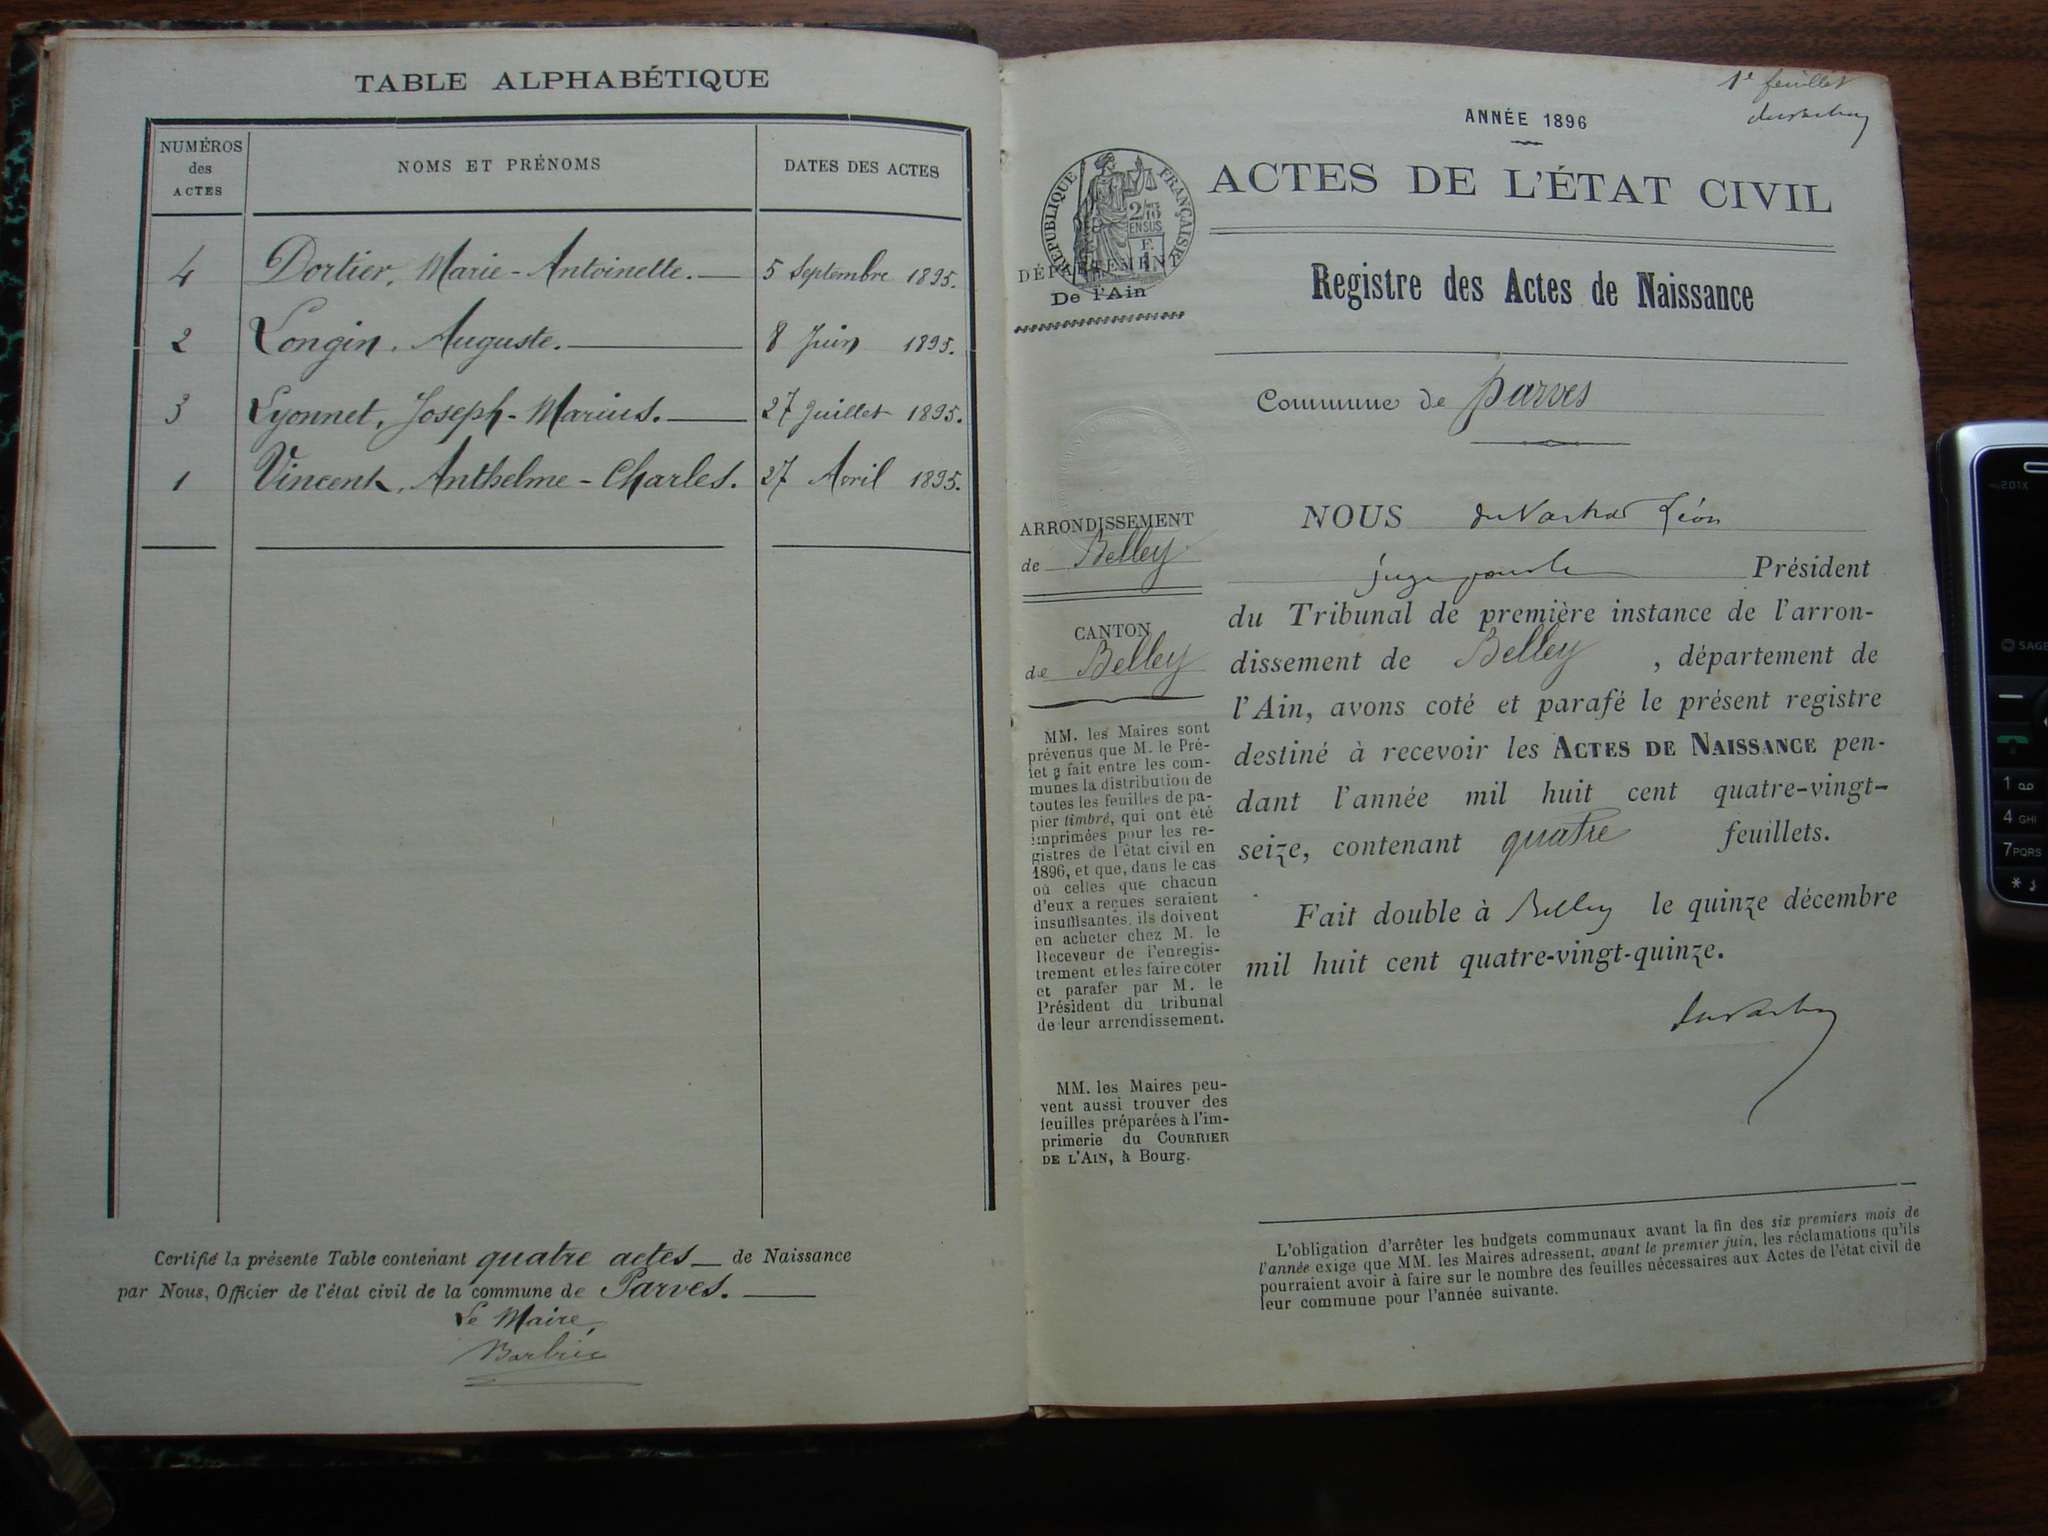 TABLE ALPHABÉTIQUE
NUMÉROS
des
ACTES
NOMS ET PRÉNOMS
DATES DES ACTES
4 Dortier, Marie-Antoinette. 5 Septembre 1895.
2 Longin, Auguste. 8 Juin 1895.
3 Lyonnet, Joseph-Marius. 27 Juillet 1895.
1 Vincent, Anthelme-Charles. 27 Avril 1895.
Certifié la présente Table contenant quatre actes de Naissance
par Nous, Officier de l'état civil de la commune de Parves.
Le Maire,
1e feuillet
ANNÉE 1896
ACTES DE L'ÉTAT CIVIL
RÉPUBLIQUE FRANÇAISE
2/10
EN SUS
DÉPARTEMENT
De l'Ain
Registre des Actes de Naissance
Commune de Parves
ARRONDISSEMENT
de Belley
CANTON
de Belley
MM. les Maires sont
prévenus que M. le Pré-
fet a fait entre les com-
munes la distribution de
toutes les feuilles de pa-
pier timbré, qui ont été
imprimées pour les re-
gistres de l'état civil en
1896, et que, dans le cas
où celles que chacun
d'eux a reçues seraient
insuffisantes, ils doivent
en acheter chez M. le
Receveur de l'enregis-
trement et les faire coter
et parafer par M. le
Président du tribunal
de leur arrondissement.
MM. les Maires peu-
vent aussi trouver des
feuilles préparées à l'im-
primerie du COURRIER
DE L'AIN, à Bourg.
NOUS Léon
Président
du Tribunal de première instance de l'arron-
dissement de Belley, département de
l'Ain, avons coté et parafé le présent registre
destiné à recevoir les ACTES DE NAISSANCE pen-
dant l'année mil huit cent quatre-vingt-
seize, contenant quatre feuillets.
Fait double à Belley le quinze décembre
mil huit cent quatre-vingt-quinze.
L'obligation d'arrêter les budgets communaux avant la fin des six premiers mois de
l'année exige que MM. les Maires adressent, avant le premier juin, les réclamations qu'ils
pourraient avoir à faire sur le nombre des feuilles nécessaires aux Actes de l'état civil de
leur commune pour l'année suivante.
1
4 GHI
7 PQRS
*